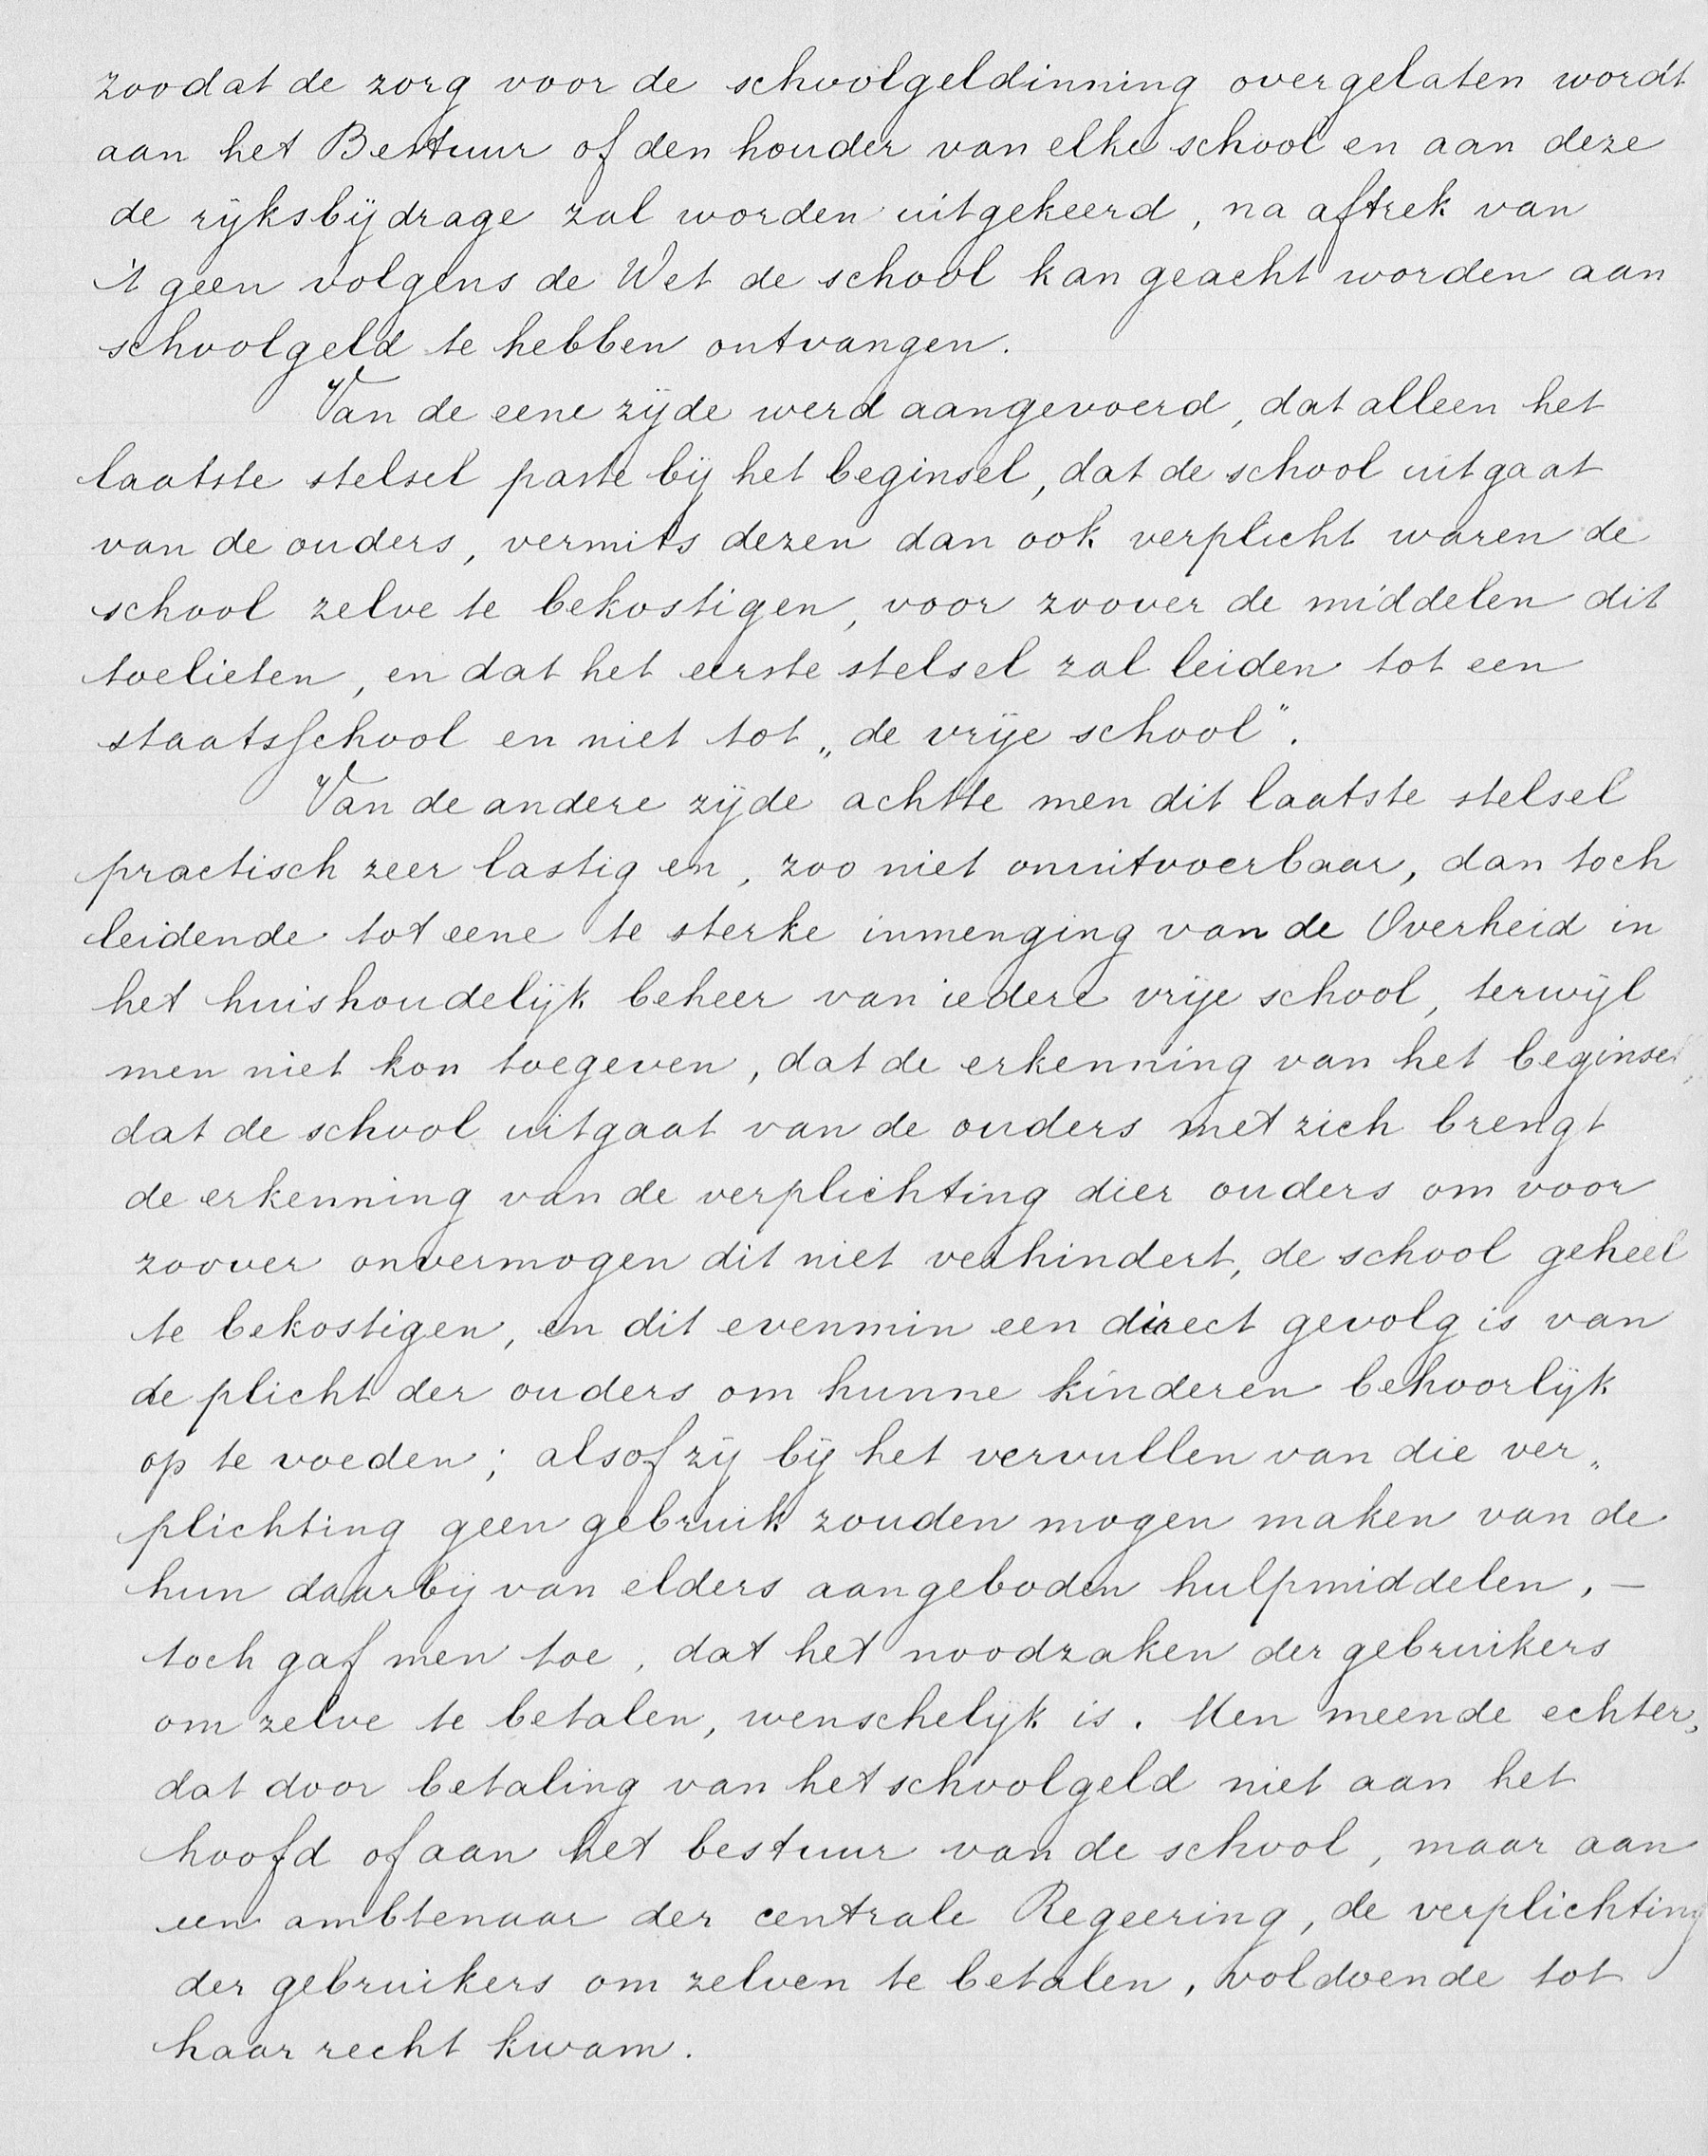 zoodat de zorg voor de schoolgeldinning overgelaten wordt
aan het Bestuur of den houder van elke school en aan deze
de rijksbijdrage zal worden uitgekeerd, na aftrek van
't geen volgens de Wet de school kan geacht worden aan
schoolgeld te hebben ontvangen.
Van de eene zijde werd aangevoerd, dat alleen het
laatste stelsel paste bij het beginsel, dat de school uitgaat
van de ouders, vermits dezen dan ook verplicht waren de
school zelve te bekostigen, voor zoover de middelen dit
toelieten, en dat het eerste stelsel zal leiden tot een
staatsschool en niet tot „de vrije school".
Van de andere zijde achtte men dit laatste stelsel
practisch zeer lastig en, zoo niet onuitvoerbaar, dan toch
leidende tot eene te sterke inmenging van de Overheid in
het huishoudelijk beheer van iedere vrije school, terwijl
men niet kon toegeven, dat de erkenning van het beginsel,
dat de school uitgaat van de ouders met zich brengt
de erkenning van de verplichting dier ouders om voor
zoover onvermogen dit niet verhindert, de school geheel
te bekostigen, en dit evenmin een direct gevolg is van
de plicht der ouders om hunne kinderen behoorlijk
op te voeden; alsof zij bij het vervullen van die ver„
plichting geen gebruik zouden mogen maken van de
hun daarbij van elders aangeboden hulpmiddelen, —
toch gaf men toe, dat het noodzaken der gebruikers
om zelve te betalen, wenschelijk is. Men meende echter,
dat door betaling van het schoolgeld niet aan het
hoofd of aan het bestuur van de school, maar aan
een ambtenaar der centrale Regeering, de verplichting
der gebruikers om zelven te betalen, voldoende tot
haar recht kwam.